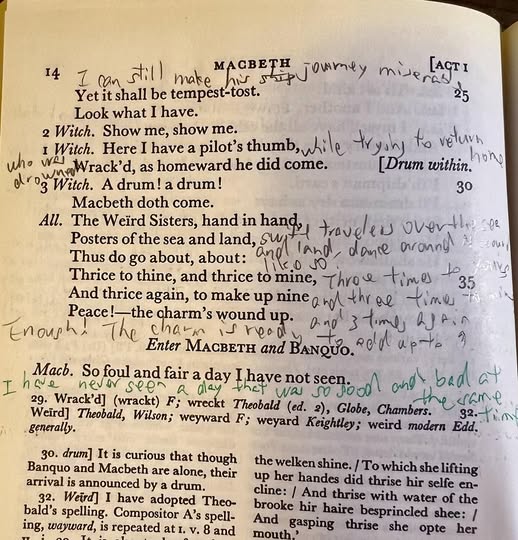 14 MACBETH [ACT I
I can still make his ship journey miserable
Yet it shall be tempest-tost. 25
Look what I have.
2 Witch. Show me, show me.
1 Witch. Here I have a pilot's thumb, while trying to return home
who was drowned
Wrack'd, as homeward he did come. [Drum within.
3 Witch. A drum! a drum! 30
Macbeth doth come.
All. The Weïrd Sisters, hand in hand,
Posters of the sea and land, swift travelers over the sea
Thus do go about, about: and land, dance around
like so
Thrice to thine, and thrice to mine, Three times to 35
And thrice again, to make up nine and three times to
Peace!—the charm's wound up. and 3 times again
Enough! The charm is ready to add up to 9
Enter MACBETH and BANQUO.
Macb. So foul and fair a day I have not seen.
I have never seen a day that was so good and bad at
the same time
29. Wrack'd] (wrackt) F; wreckt Theobald (ed. 2), Globe, Chambers. 32.
Weïrd] Theobald, Wilson; weyward F; weyard Keightley; weird modern Edd.
generally.
30. drum] It is curious that though
Banquo and Macbeth are alone, their
arrival is announced by a drum.
32. Weïrd] I have adopted Theo-
bald's spelling. Compositor A's spell-
ing, wayward, is repeated at I. v. 8 and
the welken shine. / To which she lifting
up her handes did thrise hir selfe en-
cline: / And thrise with water of the
brooke hir haire besprincled shee: /
And gasping thrise she opte her
mouth.'